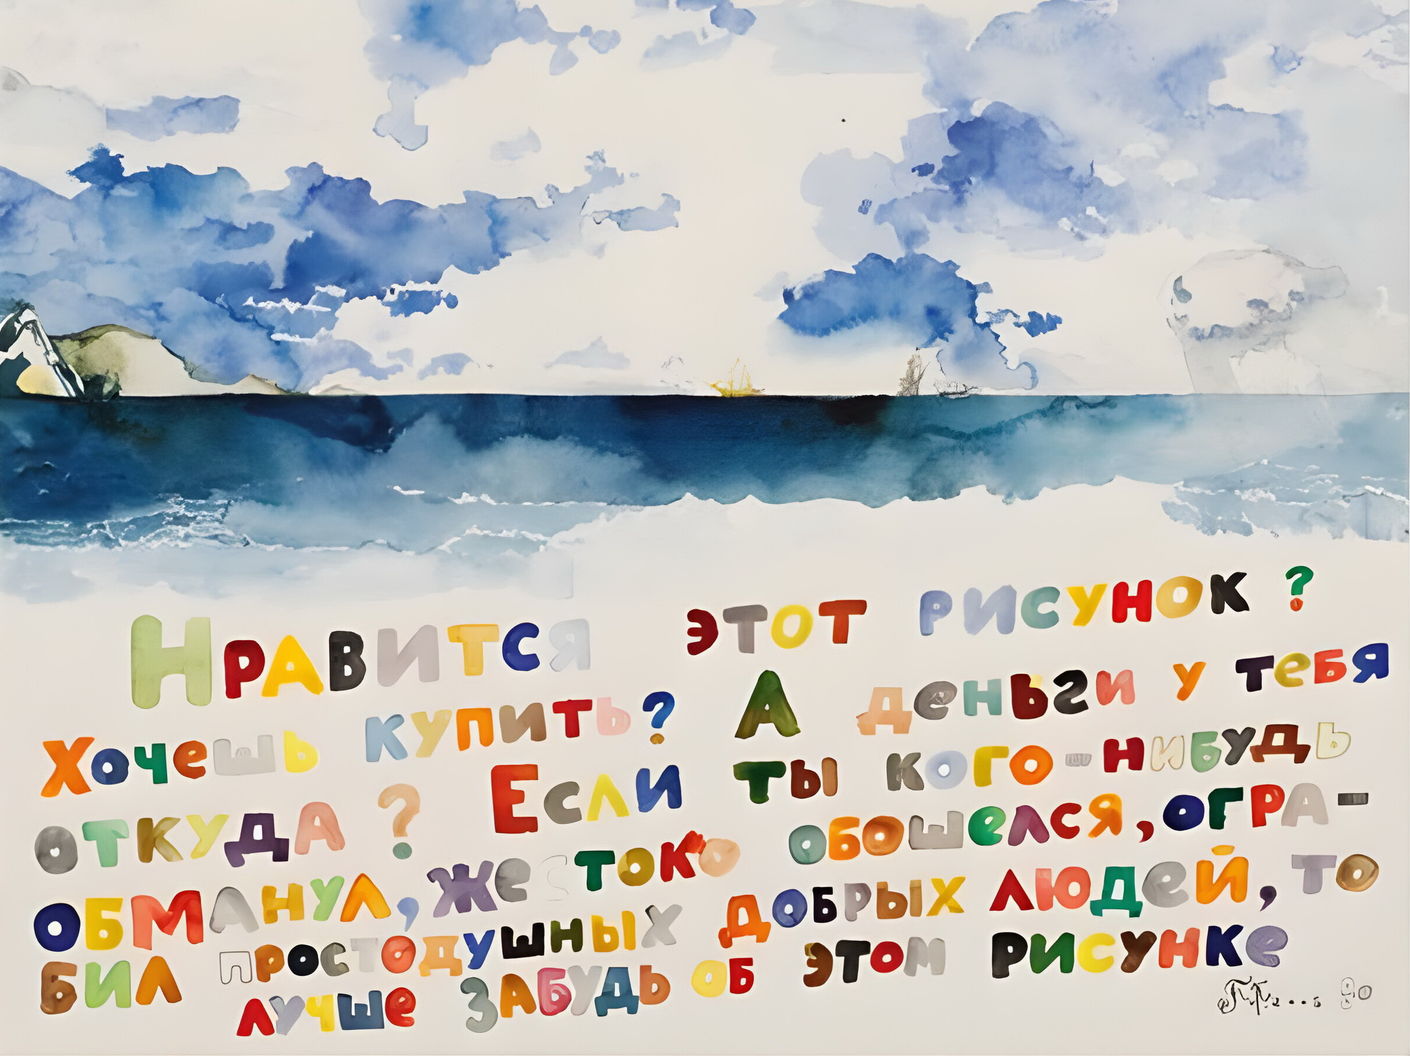 Нравится этот рисунок?
Хочешь купить? А деньги у тебя
откуда? Если ты кого-нибудь
обманул, жестоко обошелся, огра-
бил простодушных добрых людей, то
лучше забудь об этом рисунке